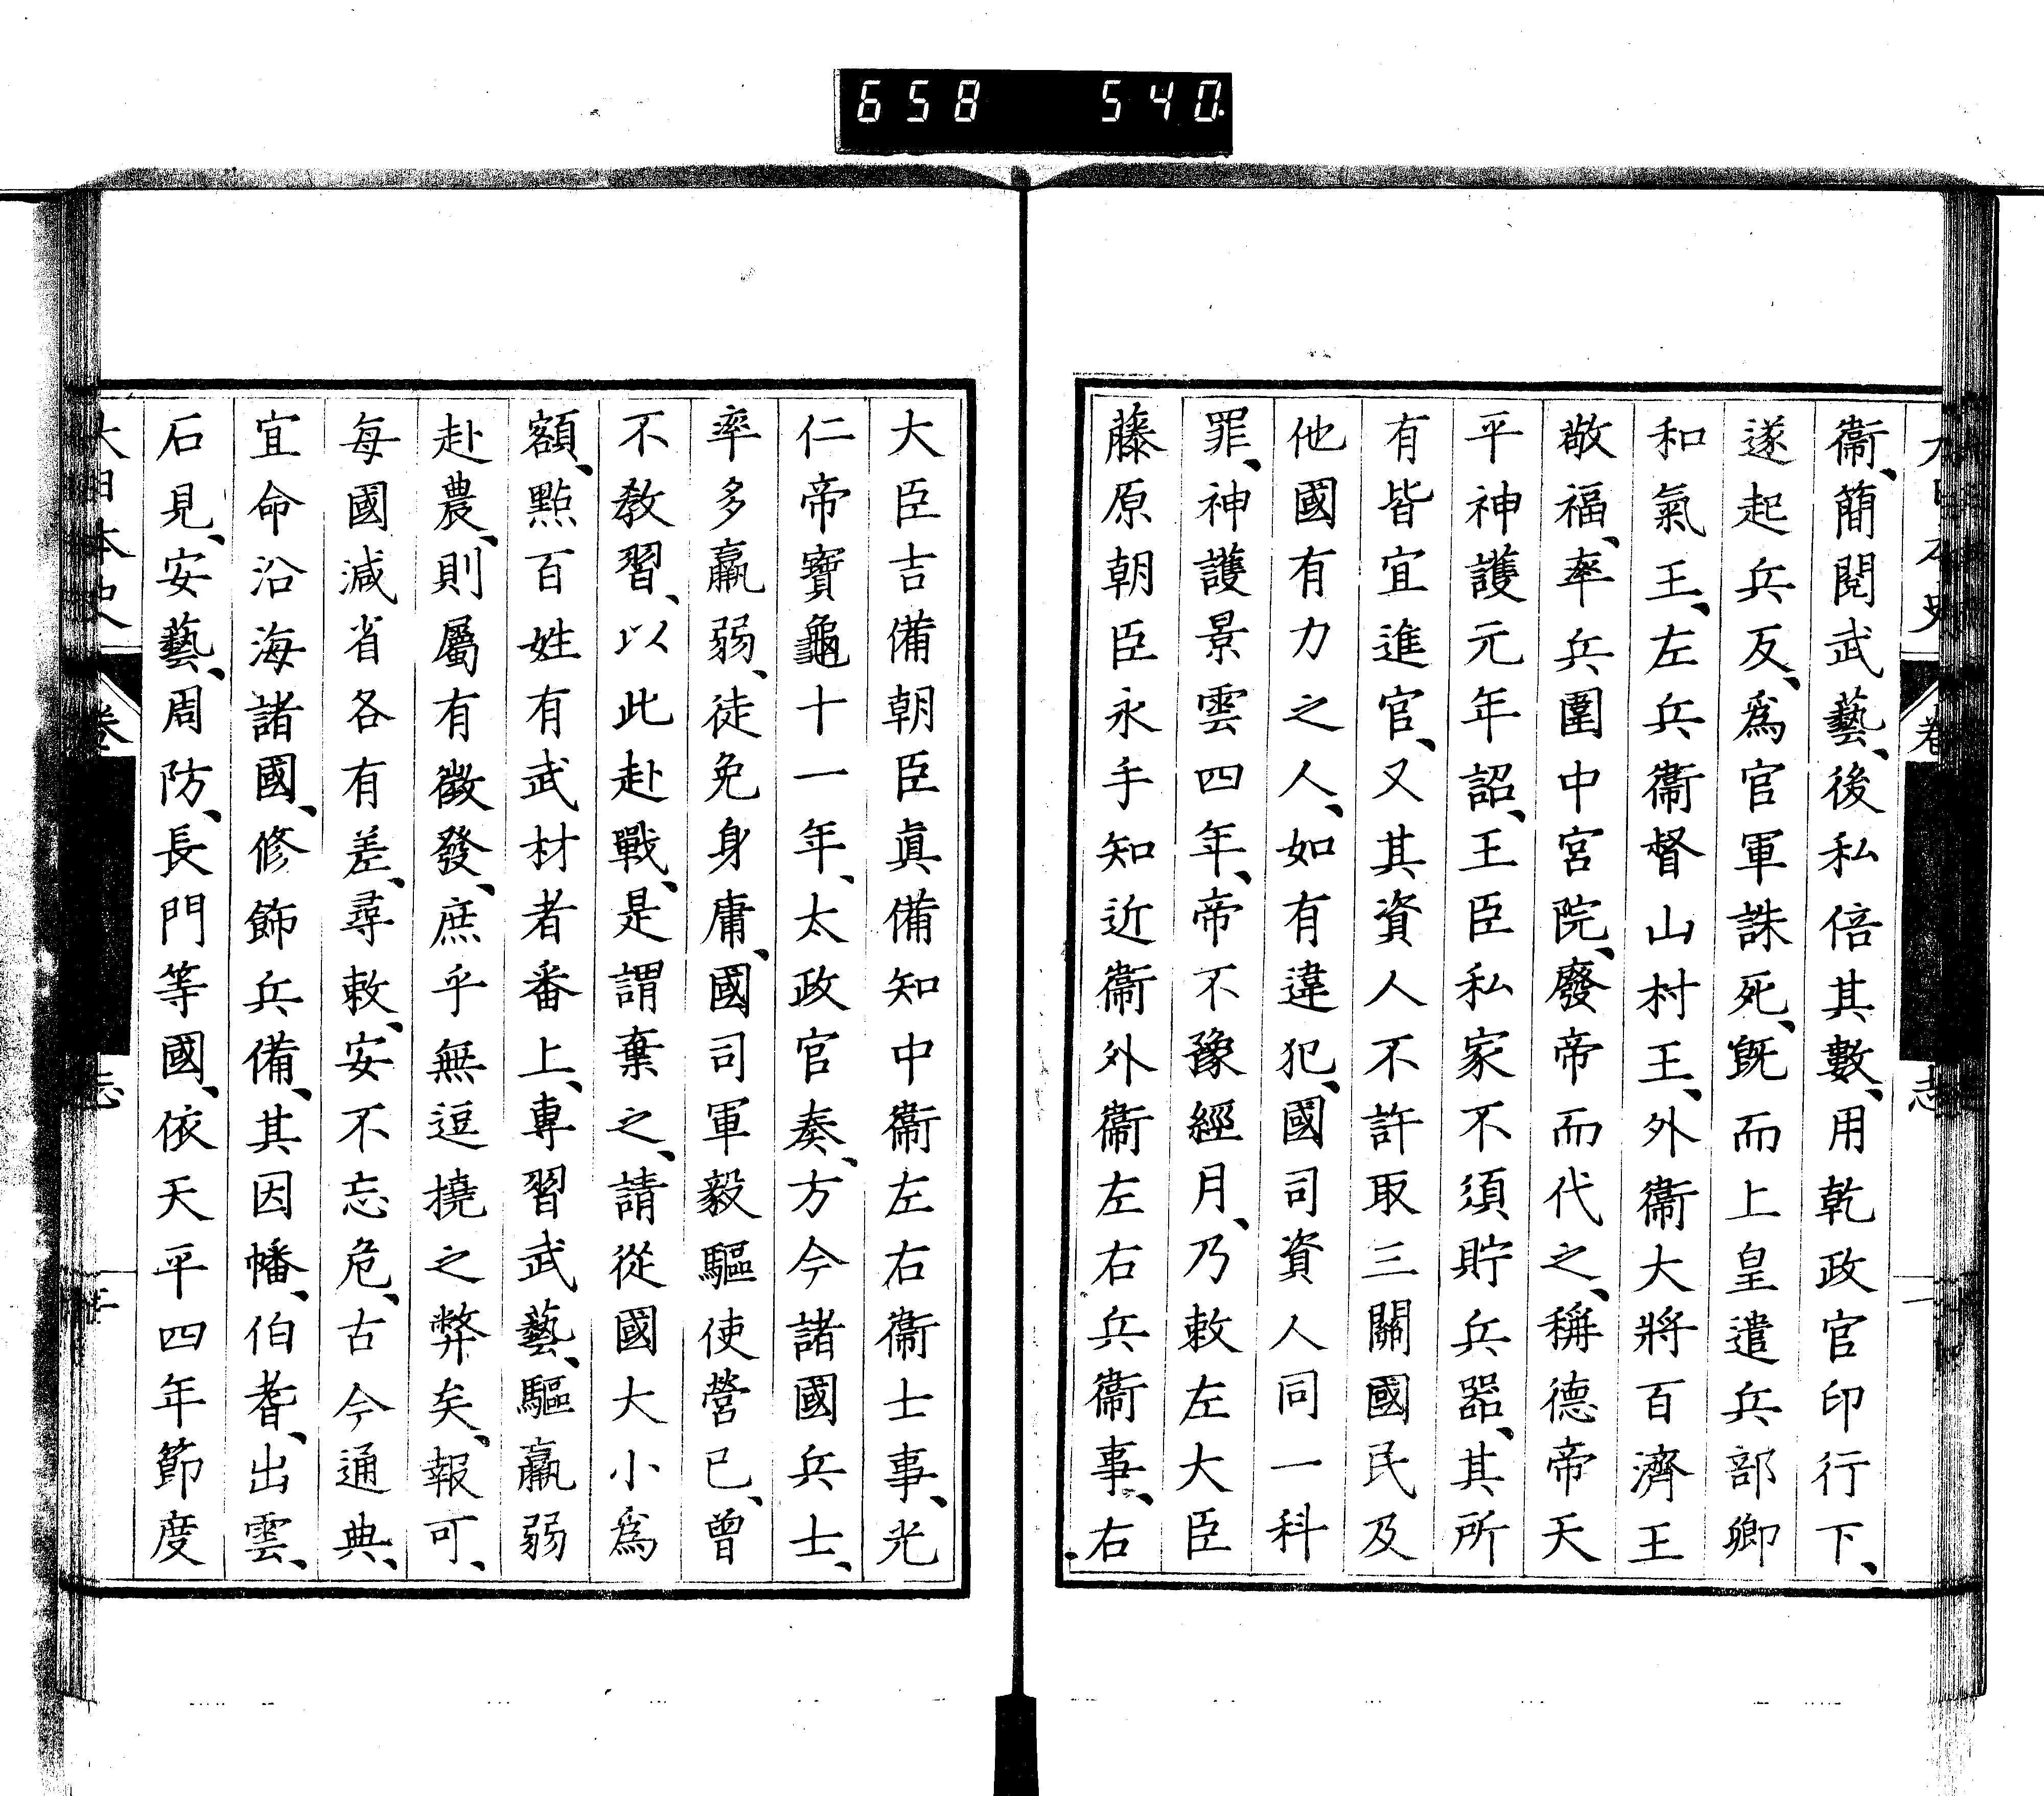 658 540.
衞、簡閱武藝、後私倍其數、用乾政官印行下、
遂起兵反、爲官軍誅死、旣而上皇遣兵部卿
和氣王、左兵衞督山村王、外衞大將百濟王
敬福、率兵圍中宮院、廢帝而代之、稱德帝天
平神護元年詔、王臣私家不須貯兵器、其所
有皆宜進官、又其資人不許取三關國民及
他國有力之人、如有違犯、國司資人同一科
罪、神護景雲四年、帝不豫經月、乃敕左大臣
藤原朝臣永手知近衞外衞左右兵衞事、右
大臣吉備朝臣眞備知中衞左右衞士事、光
仁帝寶龜十一年、太政官奏、方今諸國兵士、
率多羸弱、徒免身庸、國司軍毅驅使營已、曾
不敎習、以此赴戰、是謂棄之、請從國大小爲
額、點百姓有武材者番上、專習武藝、驅羸弱
赴農、則屬有徵發、庶乎無逗撓之弊矣、報可、
每國減省各有差、尋敕、安不忘危、古今通典、
宜命沿海諸國、修飾兵備、其因幡、伯耆、出雲、
石見、安藝、周防、長門等國、依天平四年節度
大日本史 卷 志